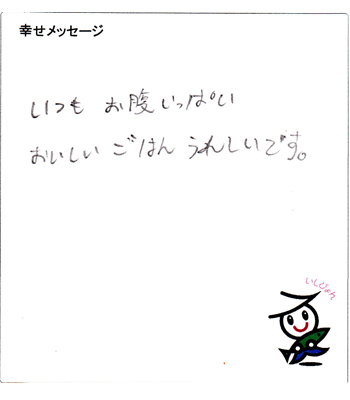 幸せメッセージ
いつも お腹いっぱい
おいしい ごはん うれしいです。